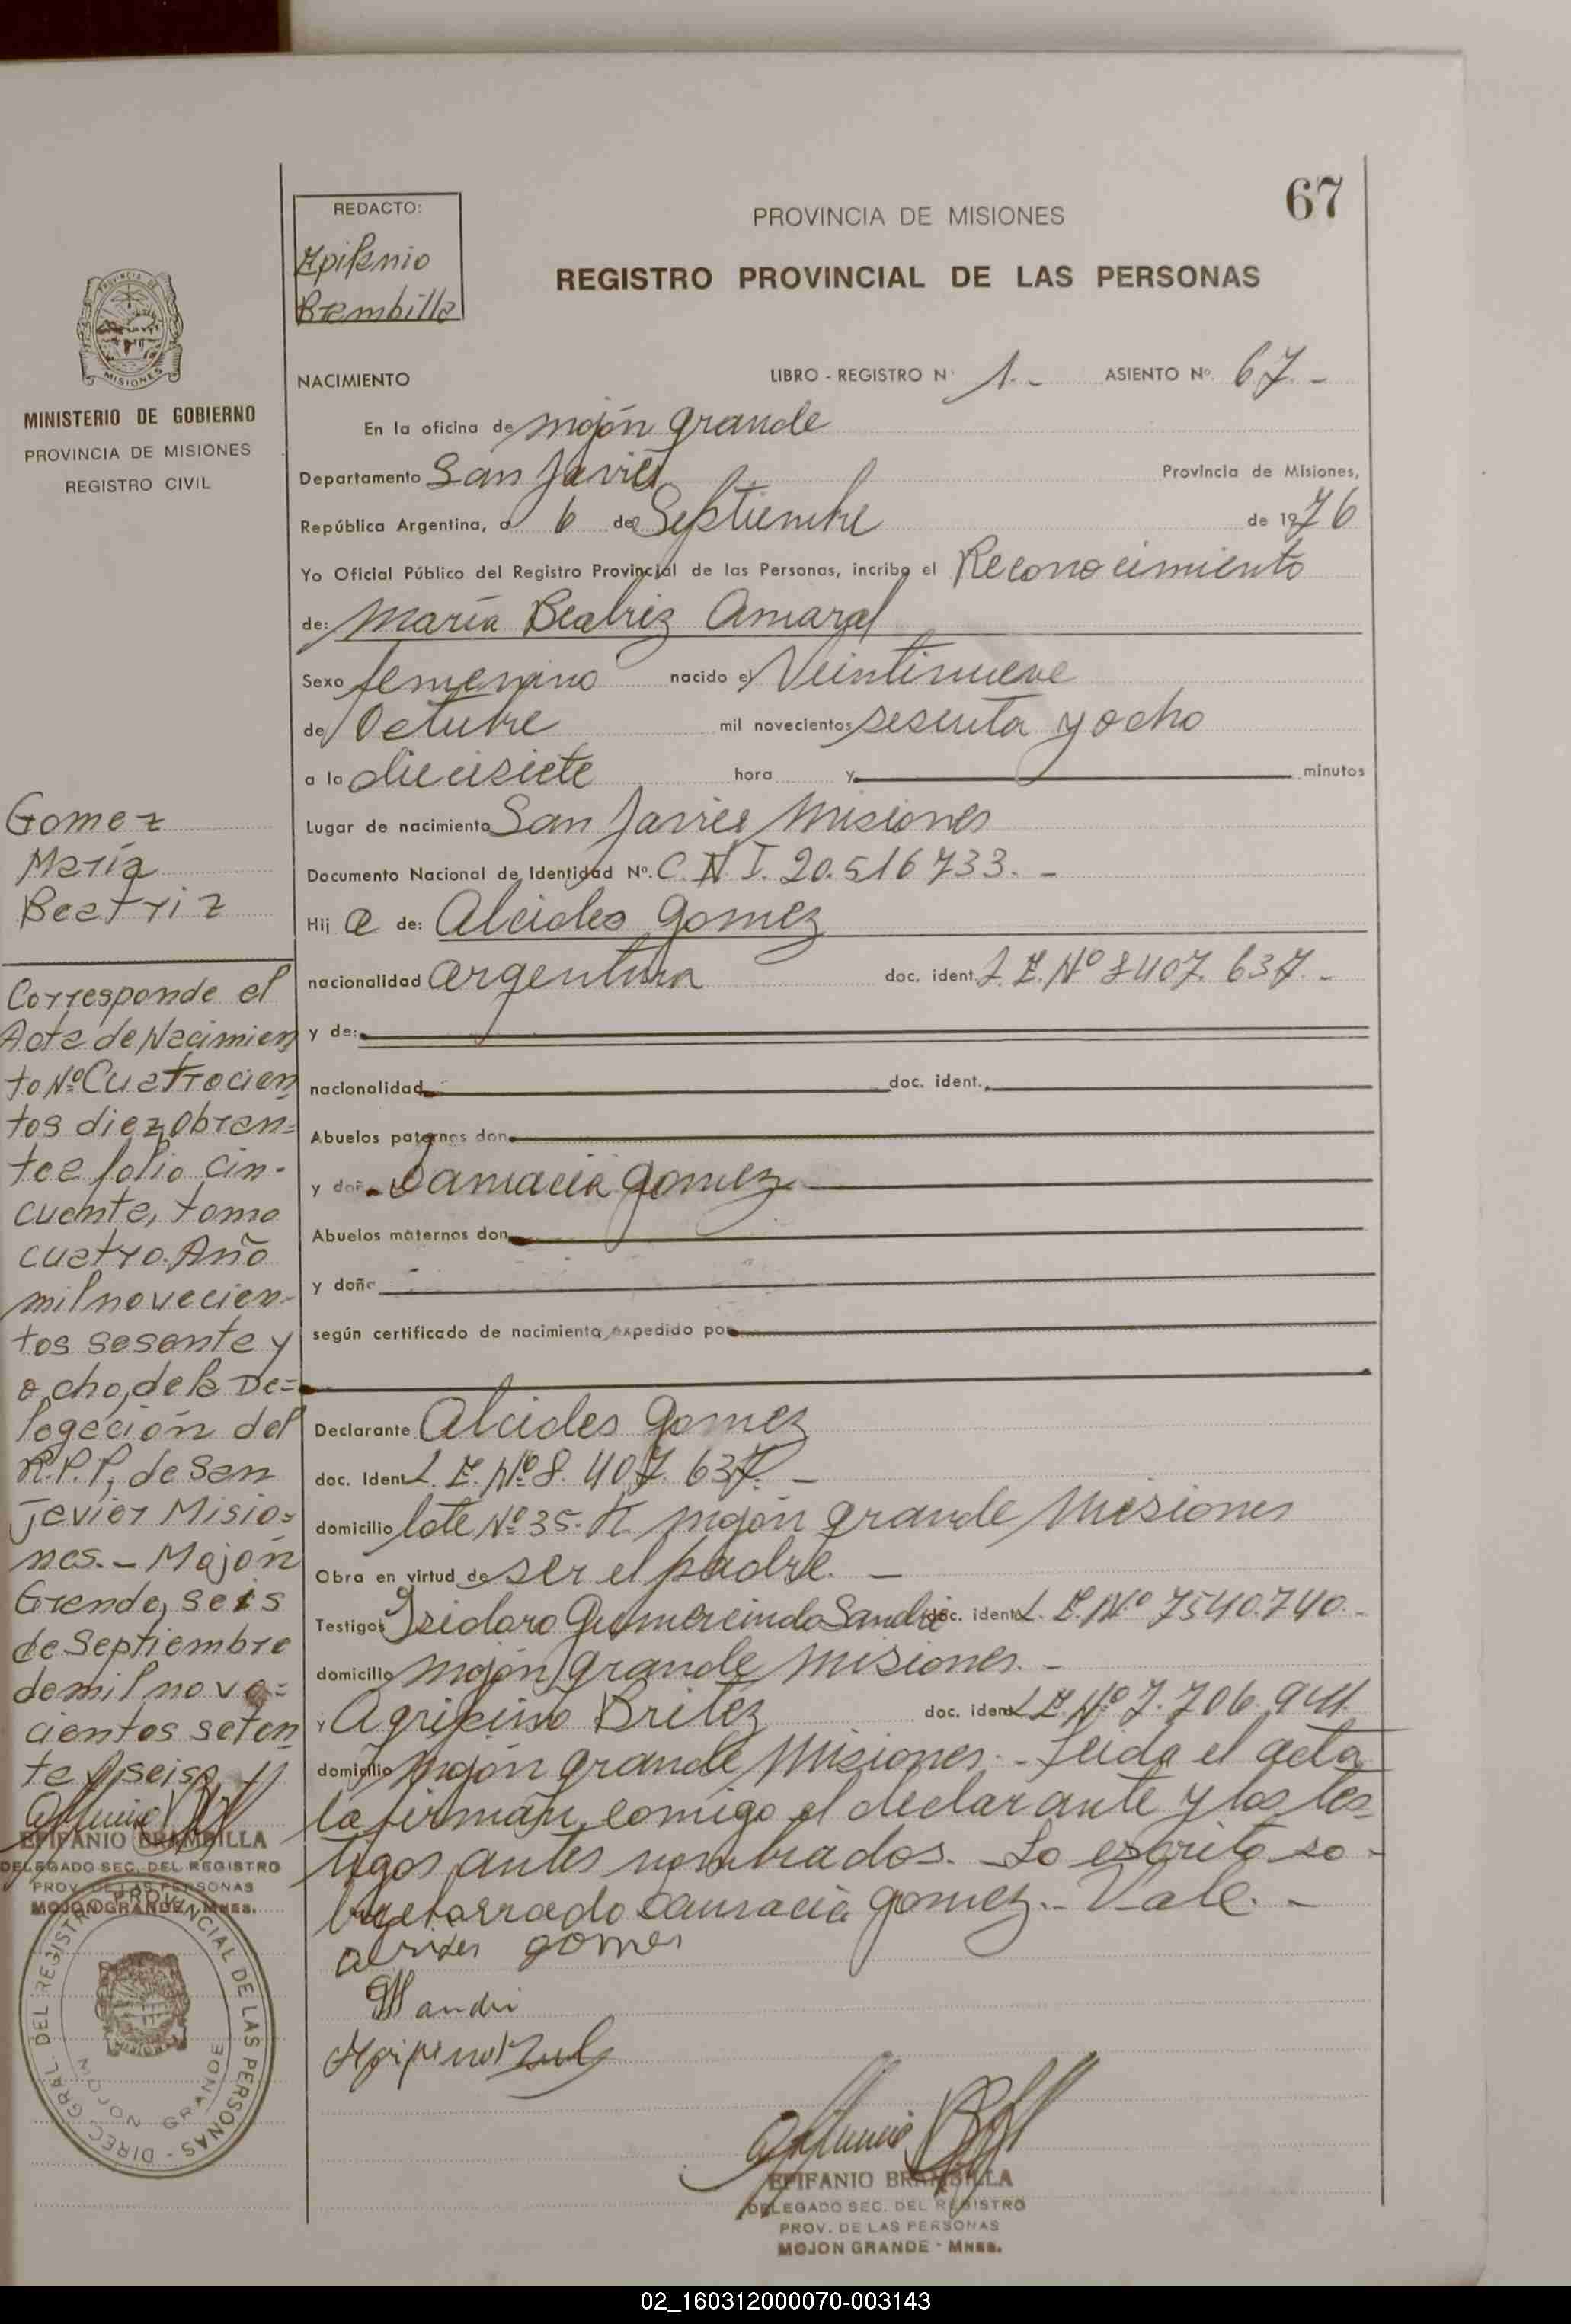 67
REDACTO:
Epifanio
Brambilla
PROVINCIA DE MISIONES
REGISTRO PROVINCIAL DE LAS PERSONAS
MISIONES
MINISTERIO DE GOBIERNO
PROVINCIA DE MISIONES
REGISTRO CIVIL
NACIMIENTO LIBRO - REGISTRO N° 1.- ASIENTO Nº. 67.-
En la oficina de mojón grande
Departamento San Javier Provincia de Misiones,
República Argentina, a 6 de Septiembre de 1976
Yo Oficial Público del Registro Provincial de las Personas, incribo el Reconocimiento
de: María Beatriz Amaral
Sexo femenino nacido el Veintinueve
de Octubre mil novecientos sesenta y ocho
a la diecisiete hora y minutos
Lugar de nacimiento San Javier Misiones
Documento Nacional de Identidad Nº. C. N I. 20.516733.-
Hij a de: Alcides Gomez
nacionalidad argentina doc. ident. L.E. Nº 8407.637.-
y de:
nacionalidad doc. ident.
Abuelos paternos don
y doña Damacia Gomez
Abuelos maternos don
y doña
según certificado de nacimiento expedido por
Declarante Alcides Gomez
doc. Ident. L.E. Nº 8.407.637.-
domicilio lote Nº 35. K mojón grande Misiones
Obra en virtud de ser el padre.-
Testigos Isidoro Gumercindo Sandri doc. ident. L.E. Nº 7540.740.-
domicilio mojón grande Misiones.-
y Agripino Britez doc. ident. L E. Nº 7.706.941
domicilio mojón grande Misiones.- Leida el acta
la firman, comigo el declarante y los tes-
tigos antes nombrados.- Lo escrito so-
breborrado Damacia Gomez.- Vale.-
alcides gomes
Sandri
EPIFANIO BRAMBILLA
DELEGADO SEC. DEL REGISTRO
PROV. DE LAS PERSONAS
MOJON GRANDE - MNES.
Gomez
María
Beatriz
Corresponde el
Acta de Nacimien
to Nº Cuatrocien
tos diez obran=
te a folio cin-
cuenta, tomo
cuatro. Año
mil novecien-
tos sesenta y
ocho, de la De=
legación del
R.P.P, de San
Javier Misio=
nes.- Mojón
Grande, seis
de Septiembre
de mil nove=
cientos seten
ta y seis.
EPIFANIO BRAMBILLA
DELEGADO SEC. DEL REGISTRO
PROV. DE LAS PERSONAS
MOJON GRANDE - MNES.
DIREC. GRAL. DEL REGISTRO PROVINCIAL DE LAS PERSONAS -
MOJON GRANDE
02_160312000070-003143